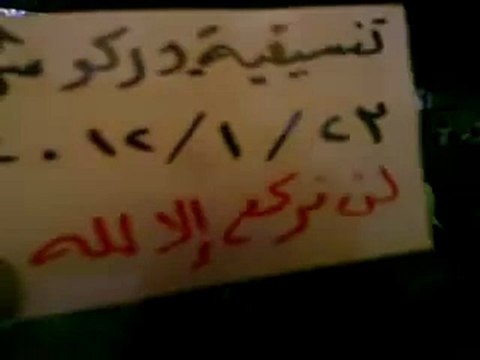 تنسيقية دركوش
٢٣/١/٢٠١٢
لن نركع إلا لله